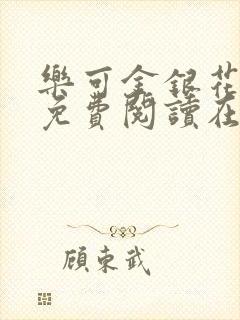 樂可金銀花
免費閱讀在
顧東武